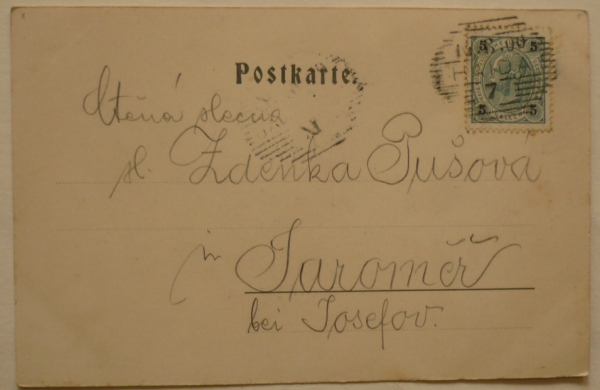 Postkarte.
Ctěná slečna
sl. Zdenka Pušová
in Jaroměř
bei Josefov.
5 5
5 5